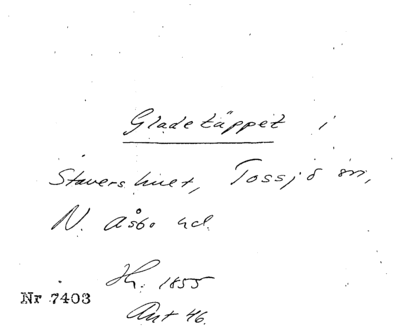 Gladetäppet i
Stavershult, Tossjö sn,
N. Åsbo hd.
Hr. 1855
Nr 7403
Ant 46.